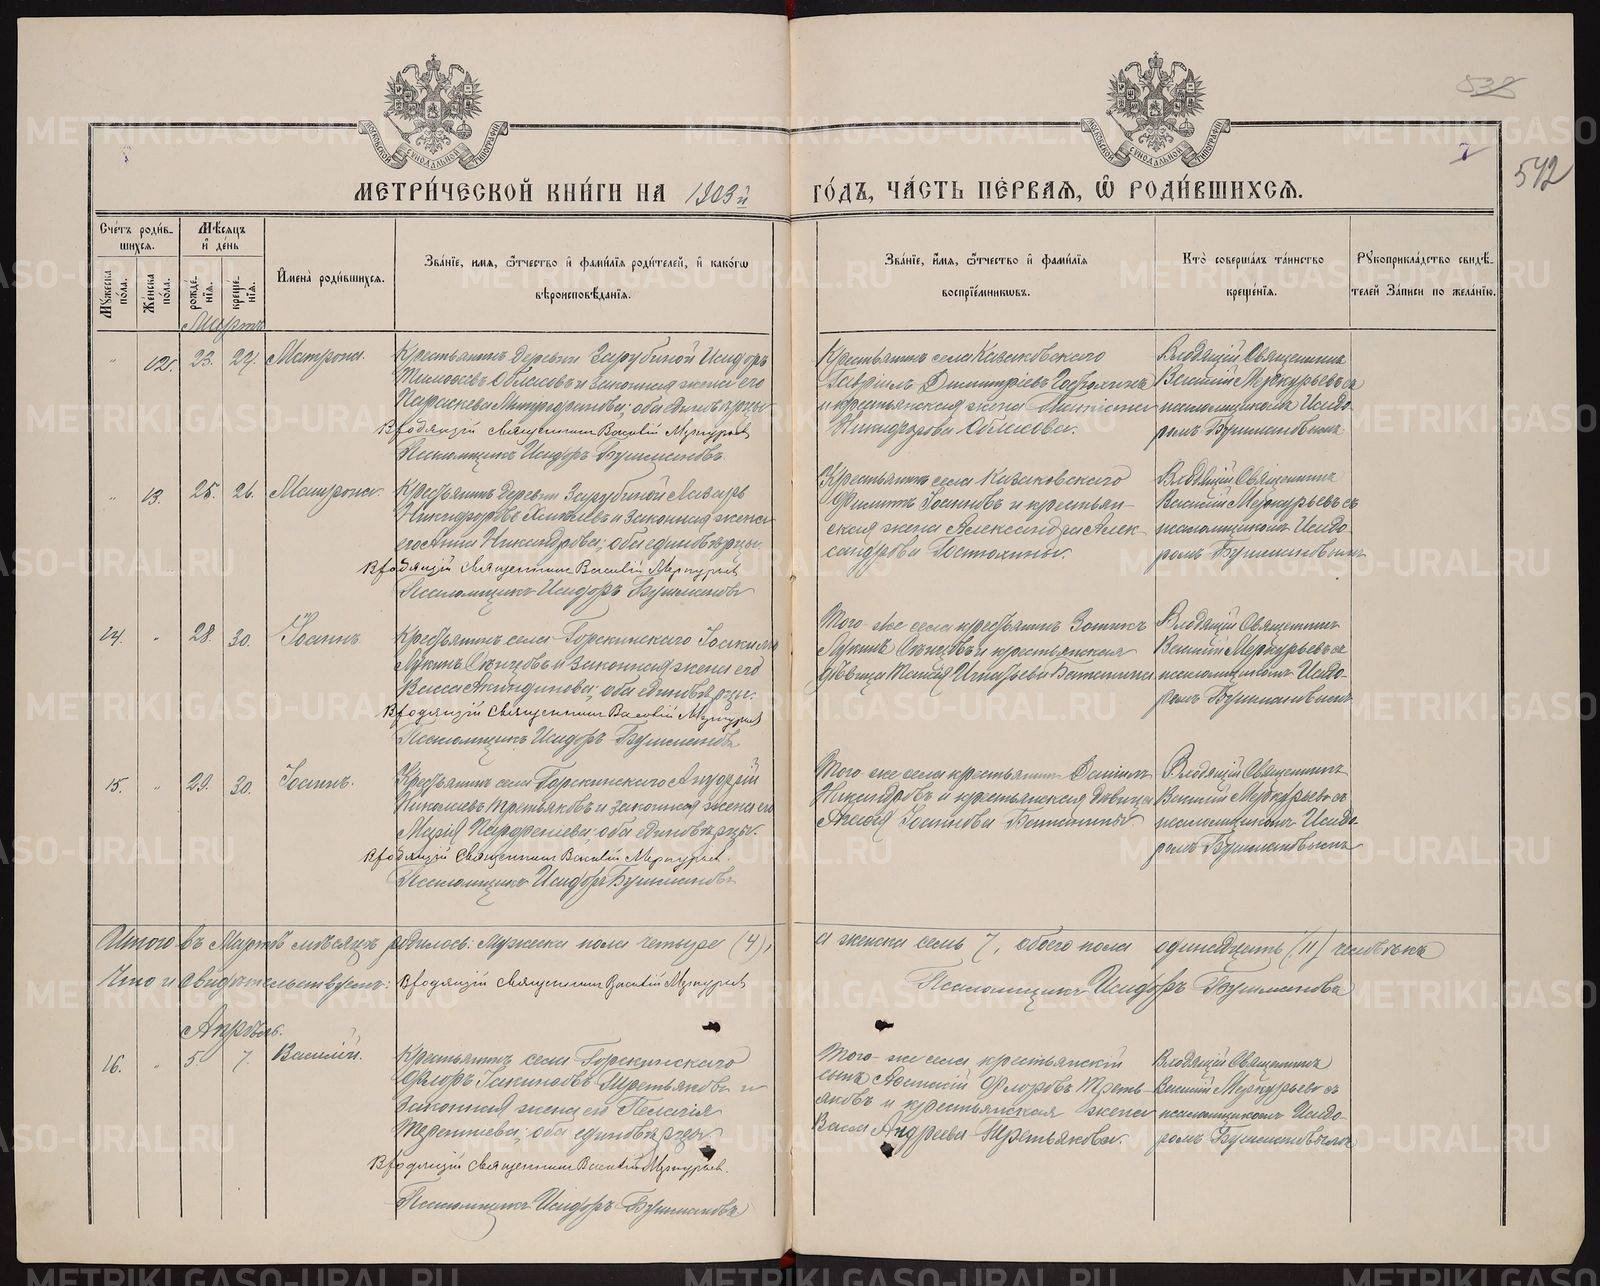 538
7
542
МОСКОВСКОЙ СѴНОДАЛЬНОЙ ТИПОГРАФІИ
МОСКОВСКОЙ СѴНОДАЛЬНОЙ ТИПОГРАФІИ
МЕТРИ́ЧЕСКОЙ КНИ́ГИ НА 1903й ГО́ДЪ, ЧА́СТЬ ПЕ́РВАѦ, Ѽ РОДИ́ВШИХСѦ.
Сче́тъ роди́в-
шихсѧ.
Мѣ́сѧцъ
и҆ де́нь
Мꙋ́жеска
пола.
Же́нска
пола.
рожде́-
нїѧ.
креще́-
нїѧ.
И҆мена̀ роди́вшихсѧ.
Зва́нїе, и҆мѧ, ѻ҆́тчество и҆ фами́лїѧ роди́телей, и҆ како́гѡ
вѣроисповѣ́данїѧ.
Зва́нїе, и҆́мѧ, ѻ҆́тчество и҆ фами́лїѧ
воспрїе́мниковъ.
Кто̀ соверша́лъ та́инство
креще́нїѧ.
Рꙋкоприкла́дство свидѣ́-
телей За́писи по жела́нїю.
Мартъ
" 12. 23. 24. Матрона.
Крестьянинъ деревни Зарубиной Исидоръ
законная жена его
Параскева Митрофанова; оба единовѣрцы
Входящій Священникъ Василій Меркурьевъ
Псаломщикъ Исидоръ Бушмановъ
Крестьянинъ села Казаковскаго
Гавріилъ Димитріевъ
и крестьянская жена
Никифорова
Входящій Священникъ
Василій Меркурьевъ съ
псаломщикомъ Исидо-
ромъ Бушмановымъ
" 13. 25. 26. Матрона.
Крестьянинъ деревни Зарубиной Лазарь
Никифоровъ и законная жена
его Анна Никандрова; оба единовѣрцы
Входящій Священникъ Василій Меркурьевъ
Псаломщикъ Исидоръ Бушмановъ
Крестьянинъ села Казаковскаго
Филиппъ Іоанновъ и крестьян-
ская жена Александра Алек-
сандрова
Входящій Священникъ
Василій Меркурьевъ съ
псаломщикомъ Исидо-
ромъ Бушмановымъ
14. " 28. 30. Іоаннъ
Крестьянинъ села Горскинскаго Іоакимъ
Лукинъ и законная жена его
Васса Акиндинова; оба единовѣрцы.
Входящій Священникъ Василій Меркурьевъ
Псаломщикъ Исидоръ Бушмановъ
Того же села крестьянинъ Зотикъ
Лукинъ и крестьянская
дѣвица Таисія Игнатьева
Входящій Священникъ
Василій Меркурьевъ съ
псаломщикомъ Исидо-
ромъ Бушмановымъ
15. " 29. 30. Іоаннъ.
Крестьянинъ села Горскинскаго Андрей
Николаевъ Третьяковъ и законная жена его
Марія Парфеніева; оба единовѣрцы.
Входящій Священникъ Василій Меркурьев.
Псаломщикъ Исидоръ Бушмановъ
Того же села крестьянинъ Даніилъ
Никандровъ и крестьянская дѣвица
Іоаннова
Входящій Священникъ
Василій Меркурьевъ съ
псаломщикомъ Исидо-
ромъ Бушмановымъ
Итого въ Мартѣ мѣсяцѣ родилось: мужеска пола четыре (4), а женска семь 7, обоего пола одинадцать (11) человѣкъ
Что и свидѣтельствуемъ: Входящій Священникъ Василій Меркурьевъ Псаломщикъ Исидоръ Бушмановъ
Апрѣль.
16. " 5. 7. Василій.
Крестьянинъ села Горскинскаго
Флоръ Третьяковъ и
законная жена его Пелагія
Терентіева; оба единовѣрцы
Входящій Священникъ Василій Меркурьев.
Псаломщикъ Исидоръ Бушмановъ
Того же села крестьянскій
сынъ Флоровъ Треть-
яковъ и крестьянская жена
Васса Андреева Третьякова.
Входящій Священникъ
Василій Меркурьевъ съ
псаломщикомъ Исидо-
ромъ Бушмановымъ
METRIKI.GASO-URAL.RU